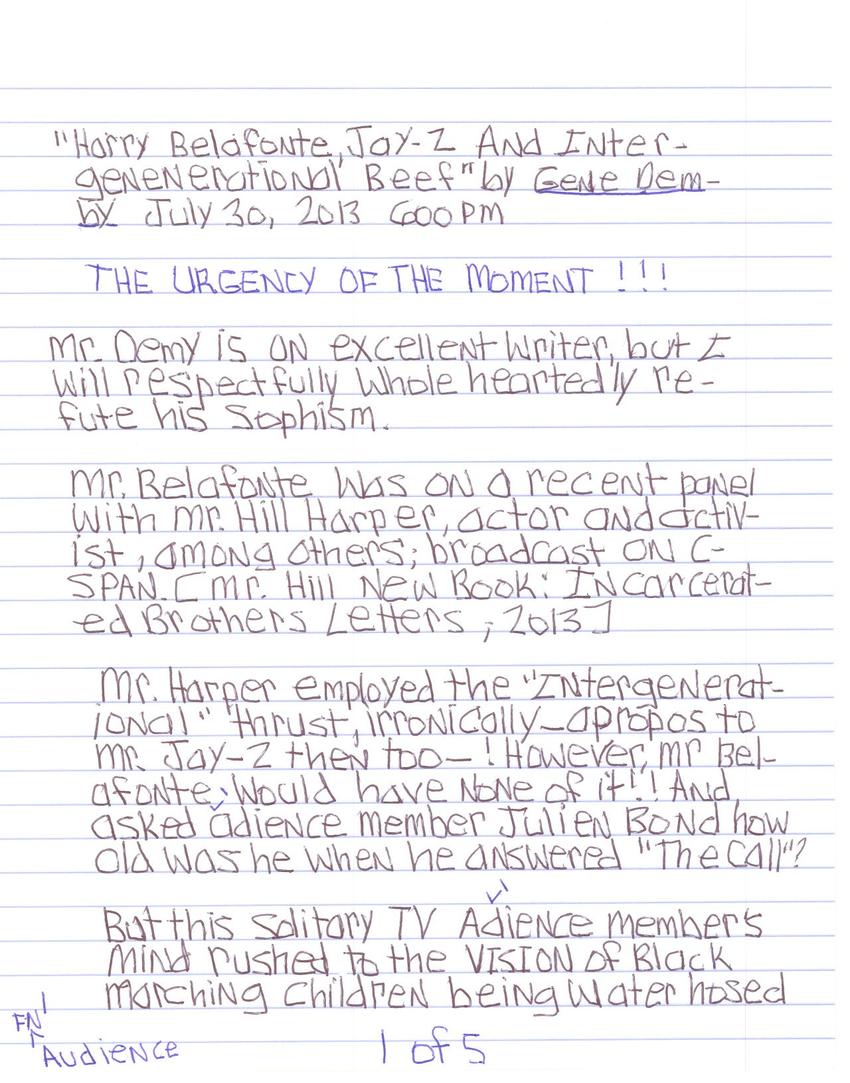 "Harry Belafonte, Jay-Z And Inter-
genenerational Beef" by Gene Dem-
by July 30, 2013 600 PM
THE URGENCY OF THE MOMENT !!!
Mr. Demy is an excellent writer, but I
will respectfully whole heartedly re-
fute his sophism.
Mr. Belafonte was on a recent panel
with Mr. Hill Harper, actor and activ-
ist, among others; broadcast on C-
SPAN. [Mr. Hill New Book: Incarcerat-
ed Brothers Letters, 2013]
Mr. Harper employed the "Intergenerat-
ional" thrust, irronically—apropos to
Mr. Jay-Z then too—! However, Mr Bel-
afonte, would have none of it!! And
asked adience member Julien Bond how
old was he when he answered "The Call"?
But this solitary TV Adience member's
mind rushed to the VISION of Black
marching children being water hosed
FN 1
Audience
1 of 5